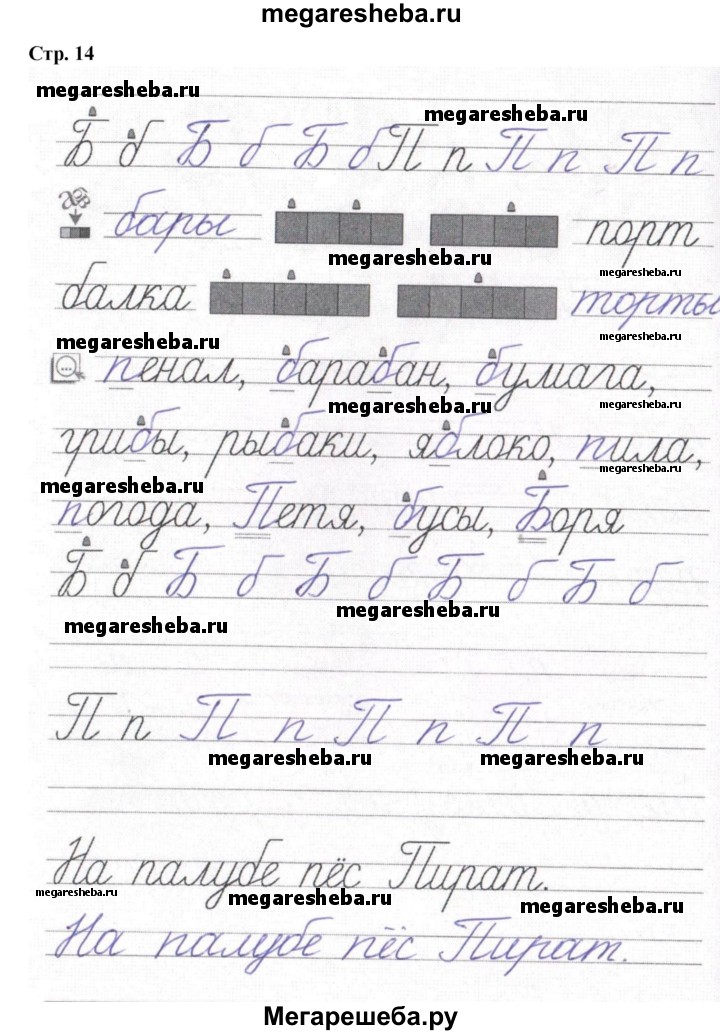 megaresheba.ru
Стр. 14
megaresheba.ru
megaresheba.ru
Б б Б б Б б П п П п П п
бары порт
megaresheba.ru
megaresheba.ru
балка торты
megaresheba.ru
megaresheba.ru
пенал, барабан, бумага,
megaresheba.ru
megaresheba.ru
грибы, рыбаки, яблоко, пила,
megaresheba.ru
megaresheba.ru
погода, Петя, бусы, Боря
Б б Б б Б б Б б Б б
megaresheba.ru
megaresheba.ru
П п П п П п П п
megaresheba.ru
megaresheba.ru
На палубе пёс Пират.
megaresheba.ru
megaresheba.ru
megaresheba.ru
На палубе пёс Пират.
Мегарешеба.ру